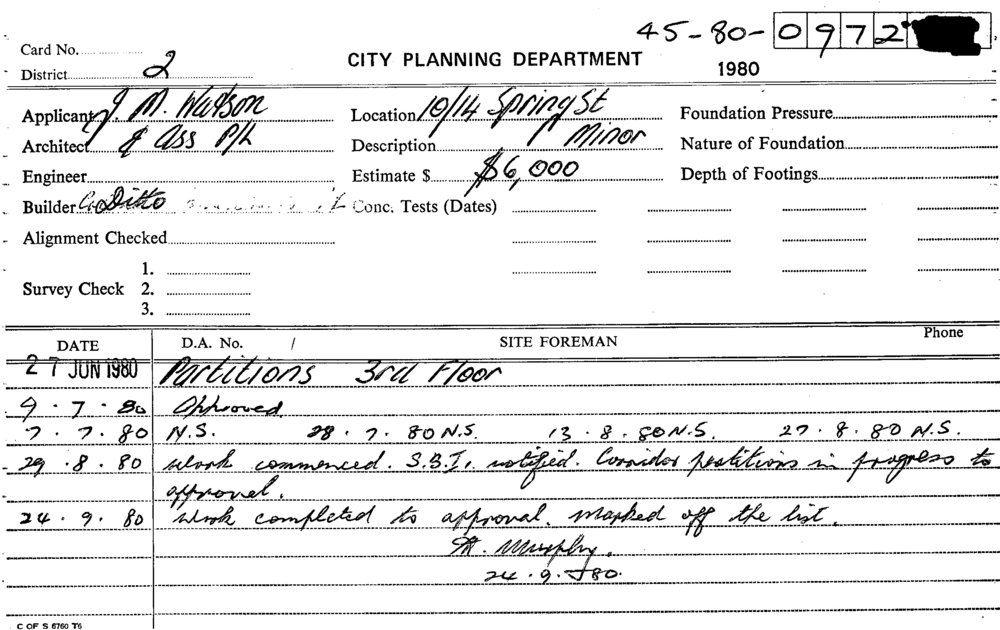 45-80-0972
Card No.
District 2
CITY PLANNING DEPARTMENT
1980
Applicant J. M. Watson
Location 10/14 Spring St
Foundation Pressure
Architect & Ass P/L
Description Minor
Nature of Foundation
Engineer
Estimate $ $6,000
Depth of Footings
Builder Ditto
Conc. Tests (Dates)
Alignment Checked
1.
Survey Check 2.
3.
DATE D.A. No. / SITE FOREMAN Phone
27 JUN 1980 Partitions 3rd Floor
9.7.80 Approved
7.7.80 N.S. 28.7.80 N.S. 13.8.80 N.S. 27.8.80 N.S.
29.8.80 Work commenced. S.B.I. notified. Corridor partitions in progress to
approval.
24.9.80 Work completed to approval. Marked off the list.
M. Murphy.
24.9.80.
C OF S 6760 T6